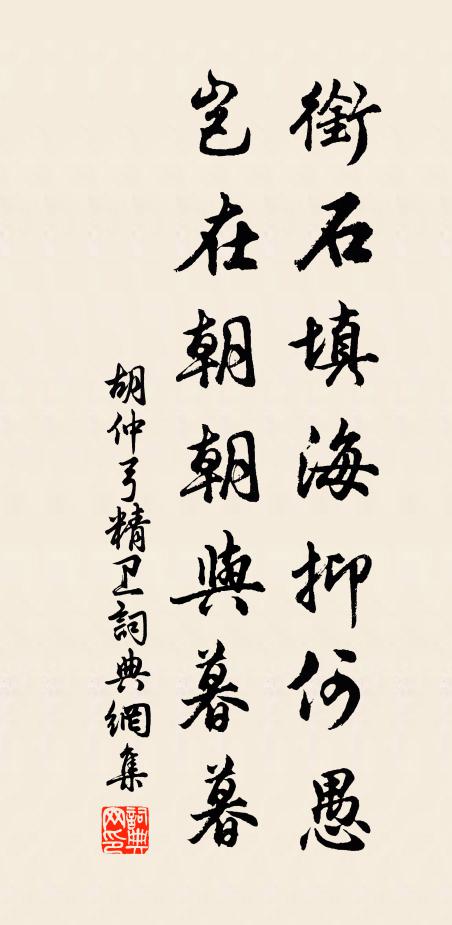 銜石填海抑何愚
岂在朝朝與暮暮
胡仲弓精卫詞典網集
詞典网印